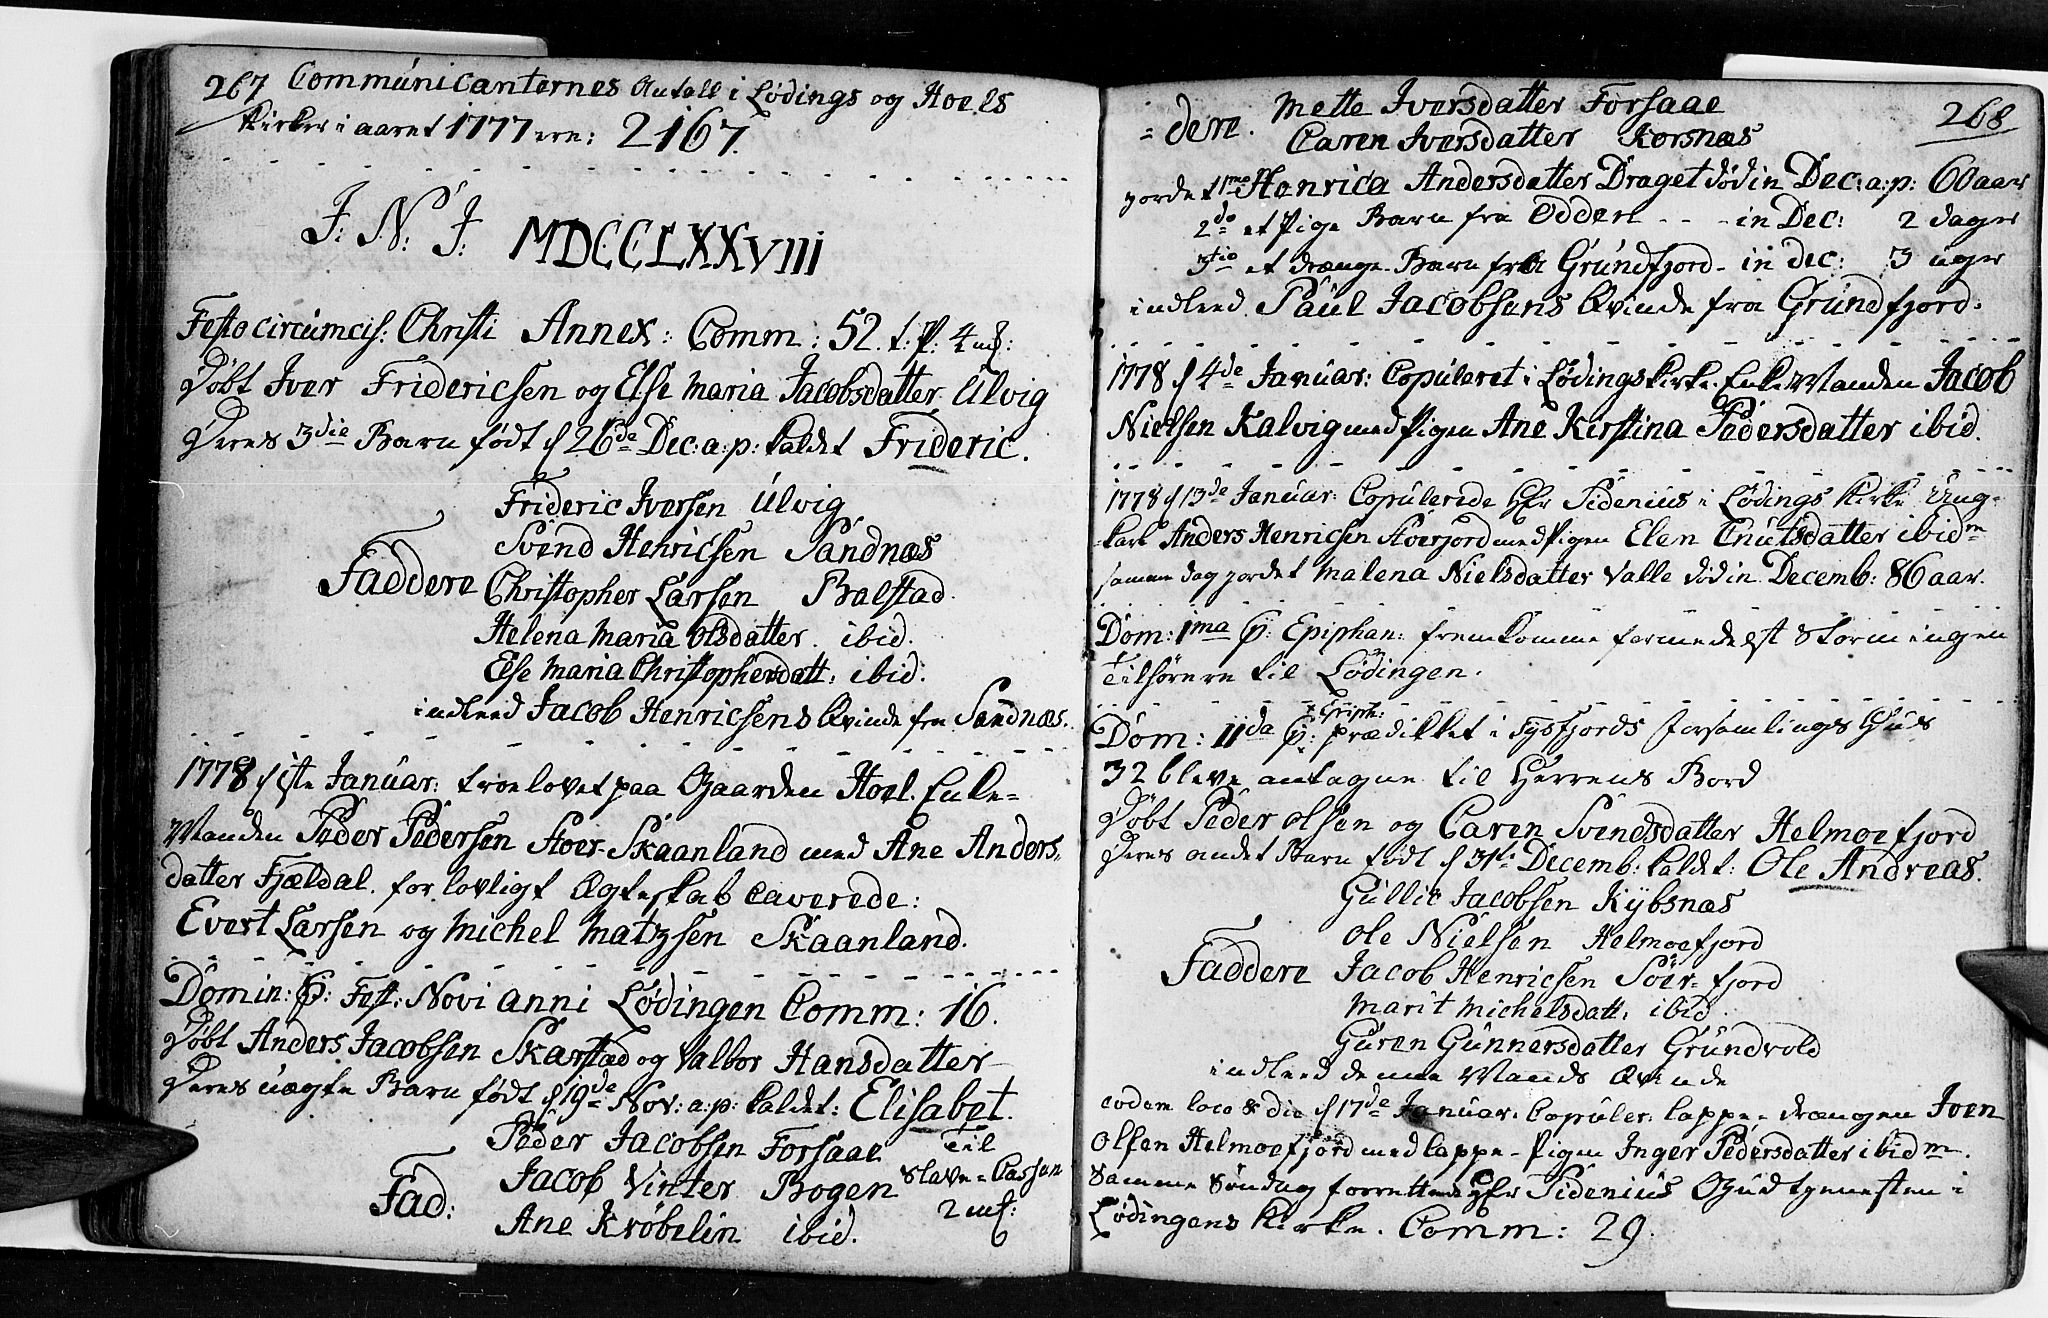 267 Communicanternes Antall i Lødings og Hoels
Kirker i aaret 1777 ere: 2167.
J: N: J: MDCCLXXVIII
Festo circumcis: Christi Annex: Comm: 52. t: P: 4 mk:
Døbt Iver Fridericsen og Else Maria Jacobsdatter Ulvig
Deres 3die Barn født d 26de Dec: a: p: kaldet Frideric.
Frideric Iversen Ulvig
Svend Henricsen Sandnæs
Faddere Christopher Larsen Balstad
Helena Maria Olsdatter ibid.
Else Maria Christophersdatt: ibid:
indleed Jacob Henricsens Qvinde fra Sandnæs.
1778 d 1ste Januar: troelovet paa Gaarden Hoel. Enke-
Manden Peder Pedersen Stoer-Skaanland med Ane Anders-
datter Fjældal. for lovligt Ægteskab caverede:
Evert Larsen og Michel Matzsen Skaanland.
Domin: p: Fest: Novi anni Lødingen Comm: 16.
Døbt Anders Jacobsen Skarstad og Valbor Hansdatter
Deres uægte Barn født d 19de Nov: a: p: kaldet: Elisabet.
Peder Jacobsen Forsaae Til
Jacob Vinter Bogen Slave-Cassen
Fad: Ane Krøbelin ibid. 2 mk:
-dere. Mette Iversdatter Forsaae 268
Caren Iversdatter Korsnæs
jordet 1mo Henrica Andersdatter Draget død in Dec: a: p: 60 aar
2do et Pige Barn fra Odden - - - in Dec: 2 dager
3tio et drænge-Barn fra Grundfjord - in dec: 3 uger
indleed Paul Jacobsens Qvinde fra Grundfjord.
1778 d 4de Januar: Copuleret i Lødings kirke. Enke Manden Jacob
Nielsen Kalvig med Pigen Ane Kirstina Pedersdatter ibid.
1778 d 13de Januar: Copulerede Hr Sidenius i Lødings Kirke Ung-
karl Anders Henricsen Stoerjord med Pigen Elen Cnutsdatter ibidm
samme dag jordet Malena Nielsdatter Valle død in Decemb: 86 aar.
Dom: 1ma p: Epiphan: fremkomme formedelst Storm ingen
Tilhørere til Lødingen.
Dom: IIda p: Epiph: prædikket i Tysfjords Forsamlings Huus
32 bleve antagne til Herrens Bord
Døbt Peder Olsen og Caren Svendsdatter Helmoefjord
Deres andet Barn født d 31te Decemb: kaldet: Ole Andreas.
Gullic Jacobsen Kybsnæs
Ole Nielsen Helmoefjord
Faddere Jacob Henricsen Søer-fjord
Marit Michelsdatt: ibid.
Guren Gunnersdatter Grundvold
indleed denne Mands Qvinde
eodem loco & die d 17de Januar. Copuler: lappe-drængen Joen
Olsen Helmoefjord med lappe-Pigen Inger Pedersdatter ibidm.
Samme Søndag forrettede Hr Sidenius Gudtjenesten i
Lødingens Kirke. Comm: 29.